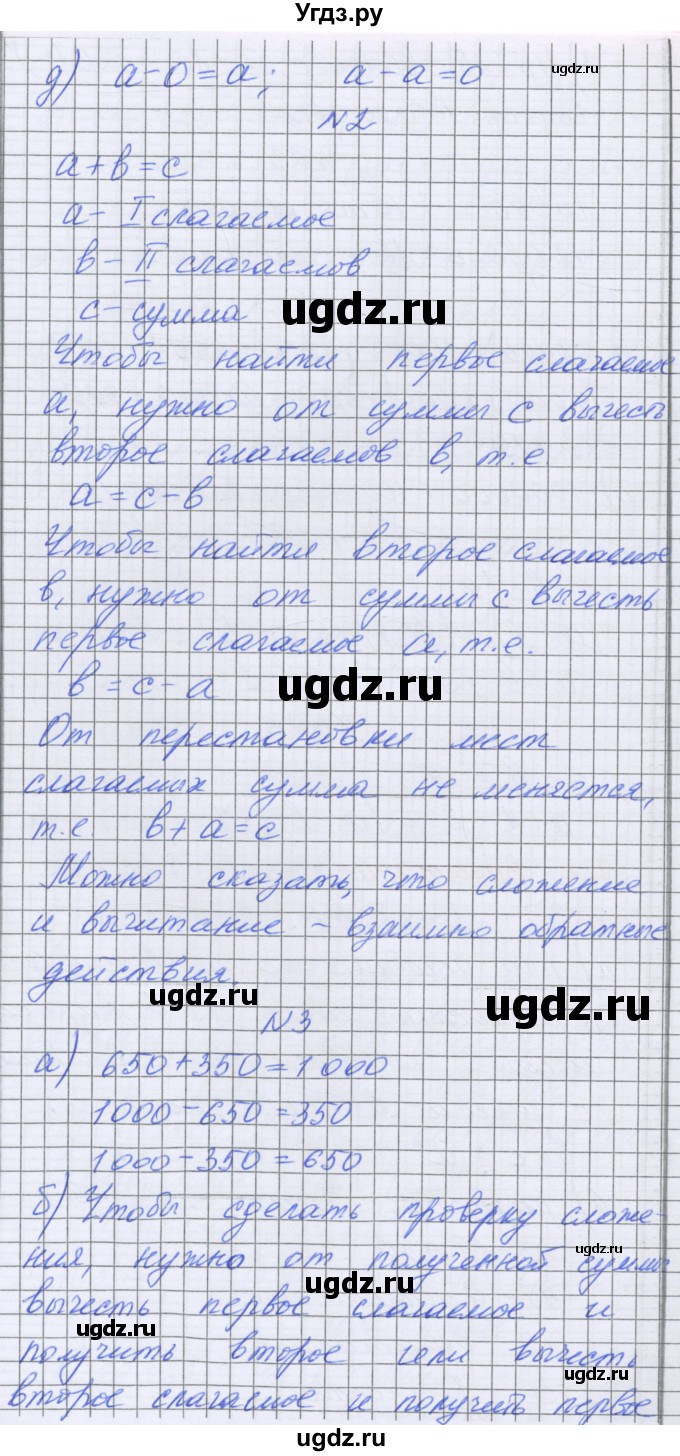 Угдз.ру
д) а-0=а; а-а=0
ugdz.ru
N2
а+в=с
а- I слагаемое
в- II слагаемов
с- сумма
ugdz.ru
Чтобы найти первое слагаемое
а, нужно от суммы с вычесть
второе слагаемов в, т.е.
а=с-в
Чтобы найти второе слагаемое
в, нужно от суммы с вычесть
первое слагаемое а, т.е.
в=с-а
ugdz.ru
От перестановки мест
слагаемых сумма не меняется,
т.е в+а=с
Можно сказать, что сложение
и вычитание - взаимно обратные
действия.
ugdz.ru
ugdz.ru
N3
а) 650+350=1000
1000-650=350
1000-350=650
б) Чтобы сделать проверку сложе-
ния, нужно от полученной суммы
ugdz.ru
ugdz.ru
вычесть первое слагаемое и
ugdz.ru
получить второе или вычесть
ugdz.ru
второе слагаемое и получить первое
ugdz.ru